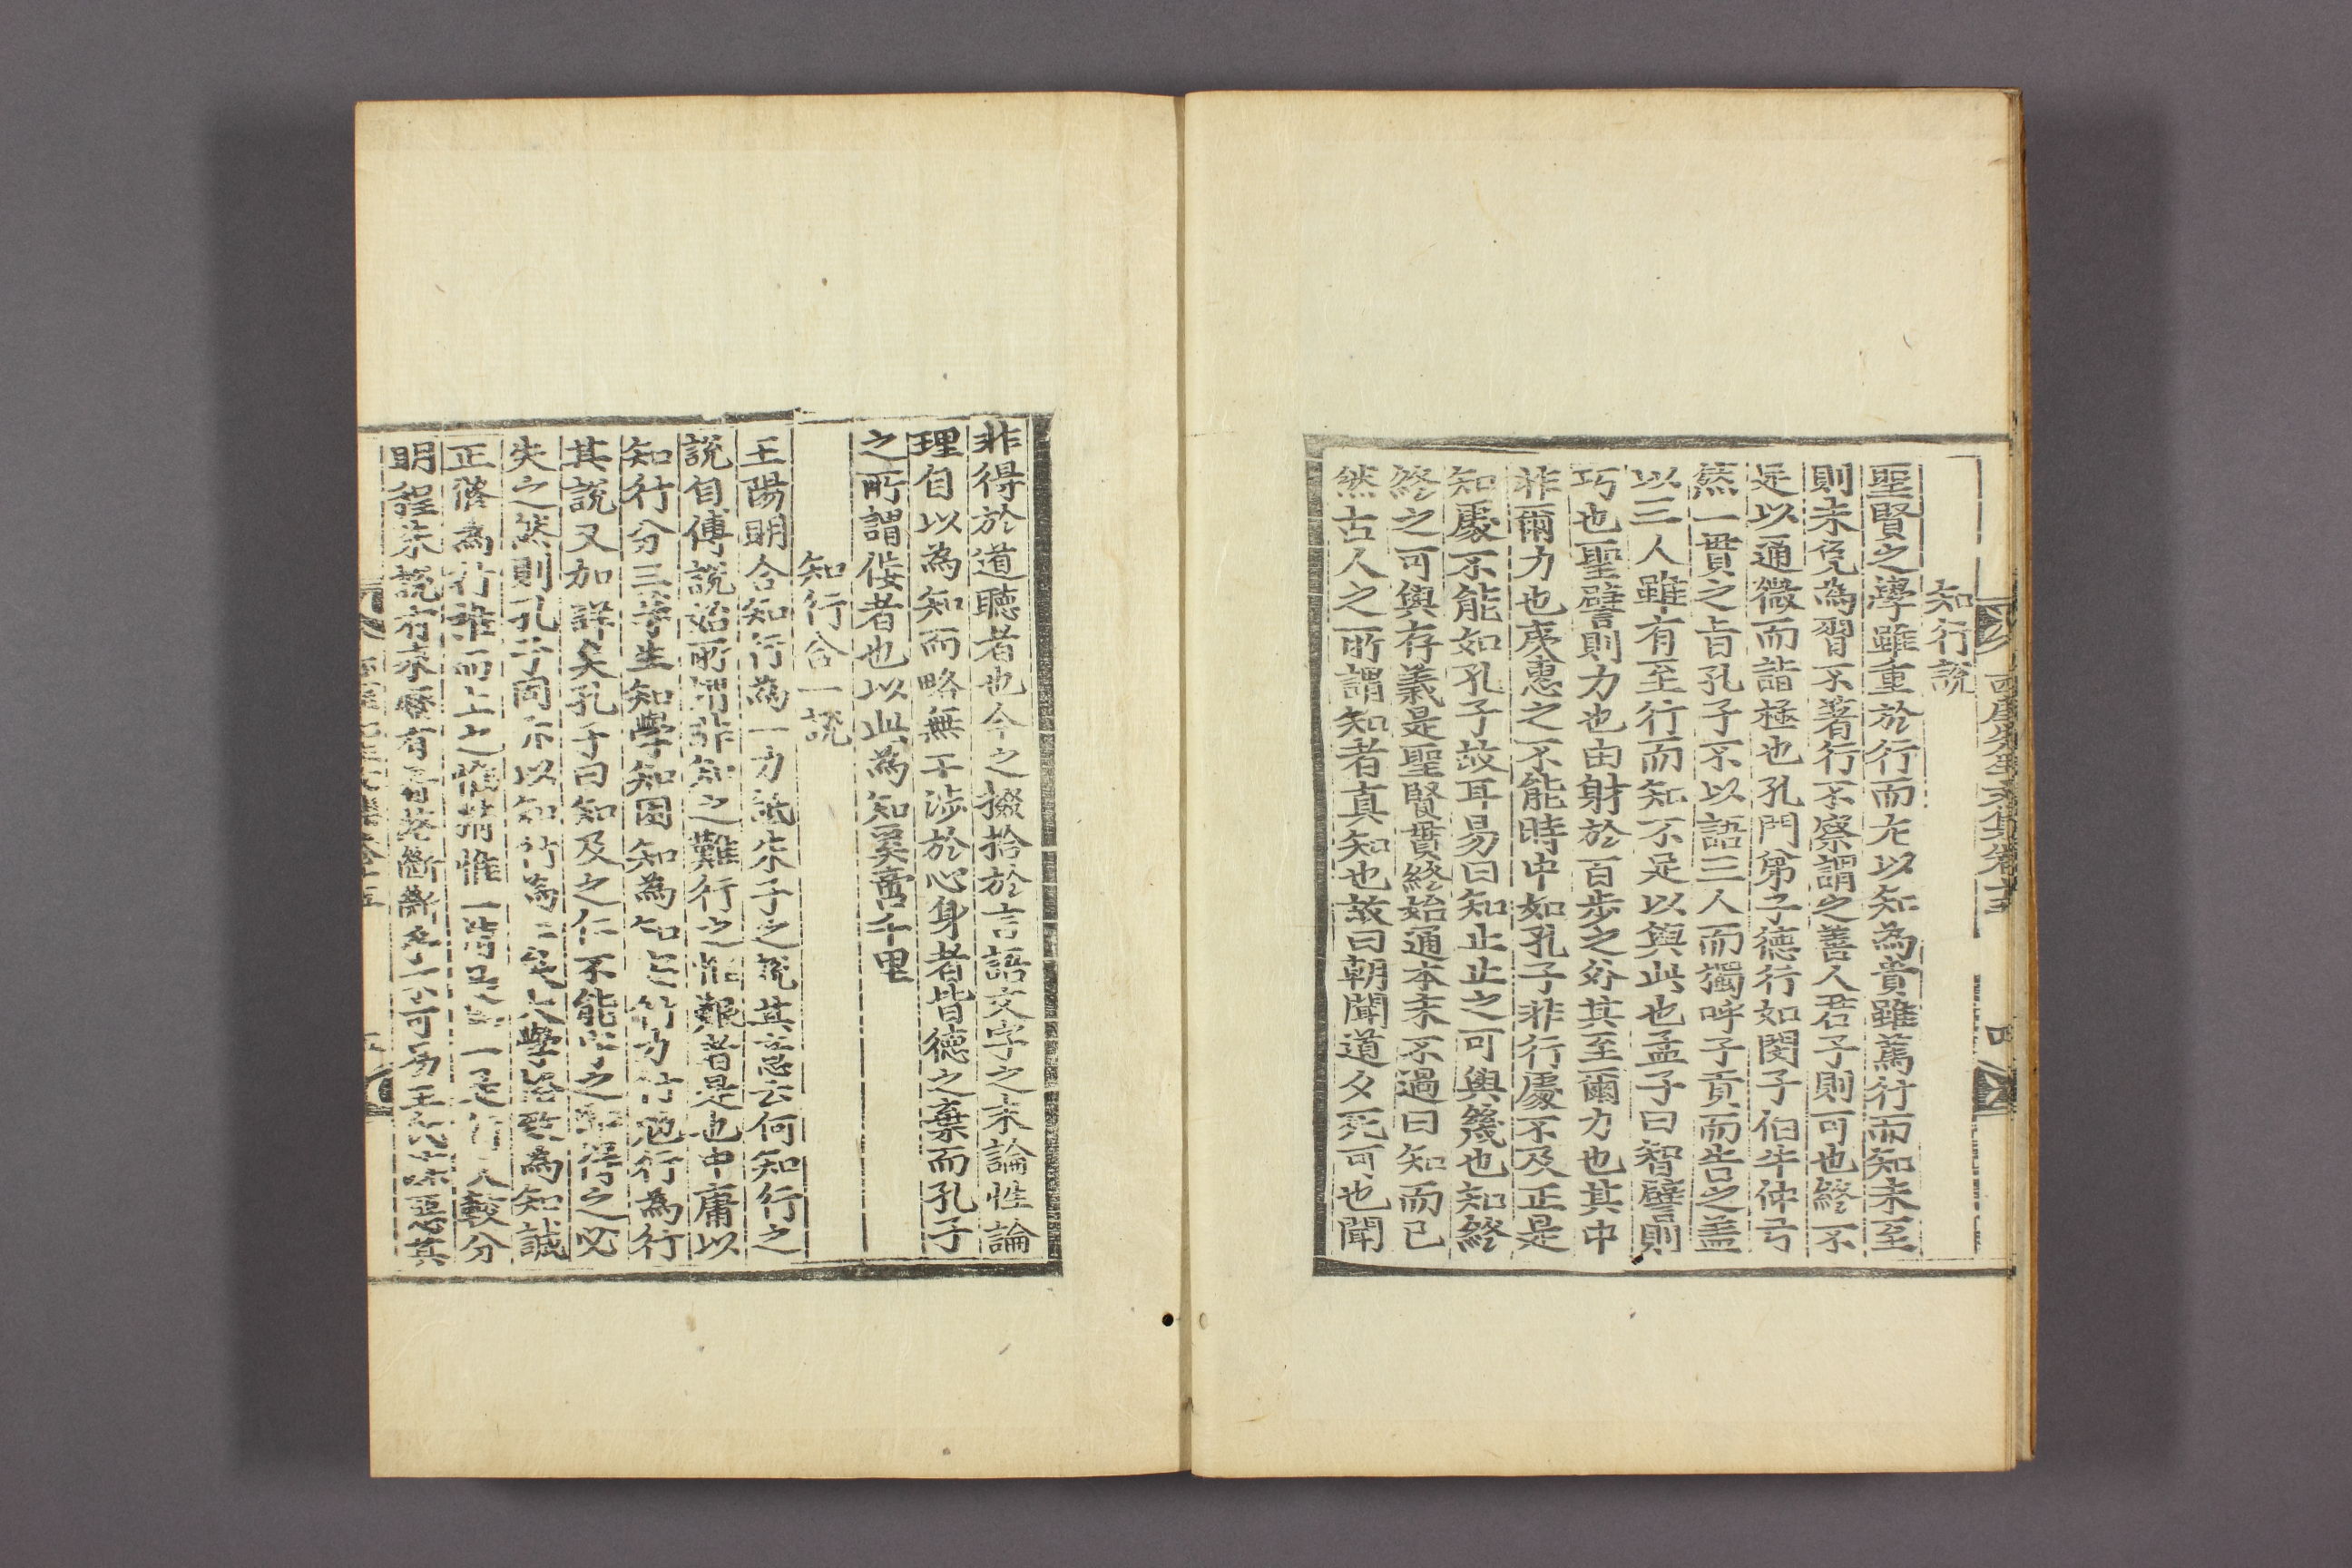 西厓先生文集卷十五
四
知行說
聖賢之學雖重於行而尤以知為貴雖篤行而知未至
則未免為習不著行不察謂之善人君子則可也終不
足以通微而詣極也孔門弟子德行如閔子伯牛仲弓
然一貫之旨孔子不以語三人而獨呼子貢而告之盖
以三人雖有至行而知不足以與此也孟子曰智譬則
巧也聖譬則力也由射於百步之外其至爾力也其中
非爾力也夷惠之不能時中如孔子非行處不及正是
知處不能如孔子故耳易曰知止止之可與幾也知終
終之可與存義是聖賢貫終始通本末不過曰知而已
然古人之所謂知者真知也故曰朝聞道夕死可也聞
非得於道聽者也今之掇拾於言語文字之末論性論
理自以為知而略無干涉於心身者皆德之棄而孔子
之所謂佞者也以此為知奚啻千里
知行合一說
王陽明合知行為一力詆朱子之說其意云何知行之
說自傅說始所謂非知之難行之惟艱者是也中庸以
知行分三等生知學知困知為知安行力行勉行為行
其說又加詳矣孔子曰知及之仁不能守之雖得之必
失之然則孔子固亦以知行為二矣大學格致為知誠
正脩為行推而上之惟精惟一精是知一是行人較分
明程朱說有來歷有着落斷斷乎不可易王氏之意其